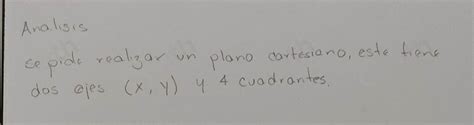 Analisis
se pide realizar un plano cartesiano, este tiene
dos ejes (x, y) y 4 cuadrantes.